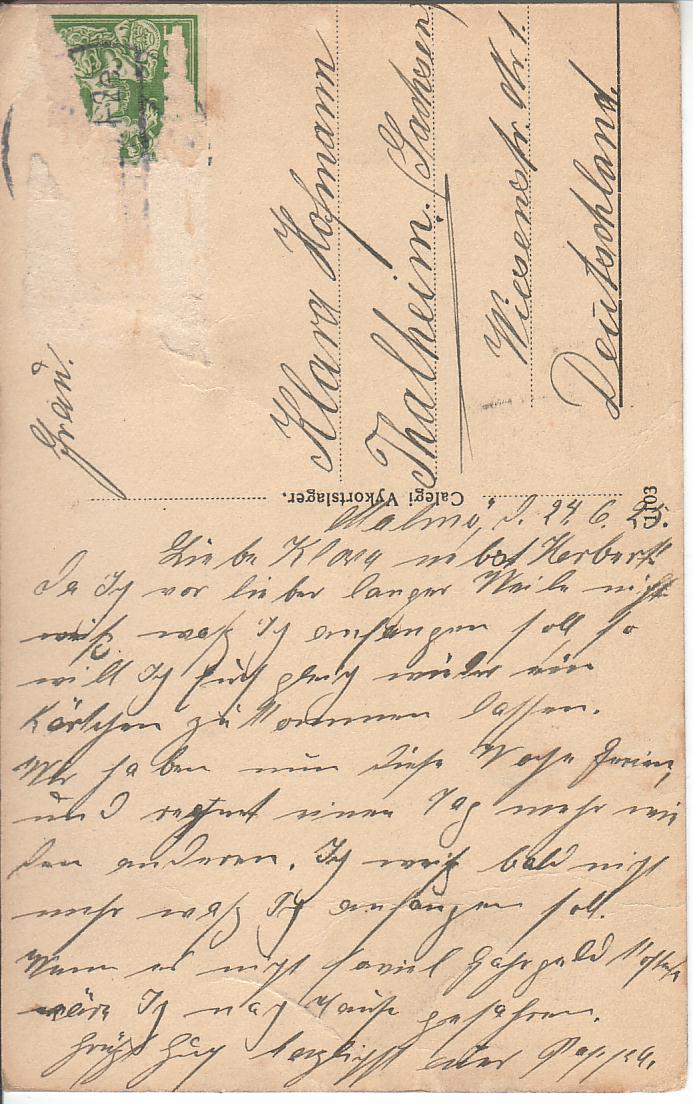 Frau.
Klara Hofmann
Thalheim. (Sachsen)
Wiesenstr. Nr. 1.
Deutschland.
Calegi Vykortslager.
1103
Malmö, d. 24. 6. 25.
Liebe Klara nebst Herbert
Da Ich vor lieber langer Weile nicht
weiß waß Ich anfangen soll so
will Ich Euch gleich wieder ein
Kärtchen zu kommen lassen.
Wir haben nun diese Woche Ferien,
und regnet einen Tag mehr wie
den anderen. Ich weiß bald nicht
mehr waß Ich anfangen soll.
Wenn es nicht soviel Fahrgeld kostete
wäre Ich nach Hause gefahren.
Grüßt Euch herzlichst euer Pappa.